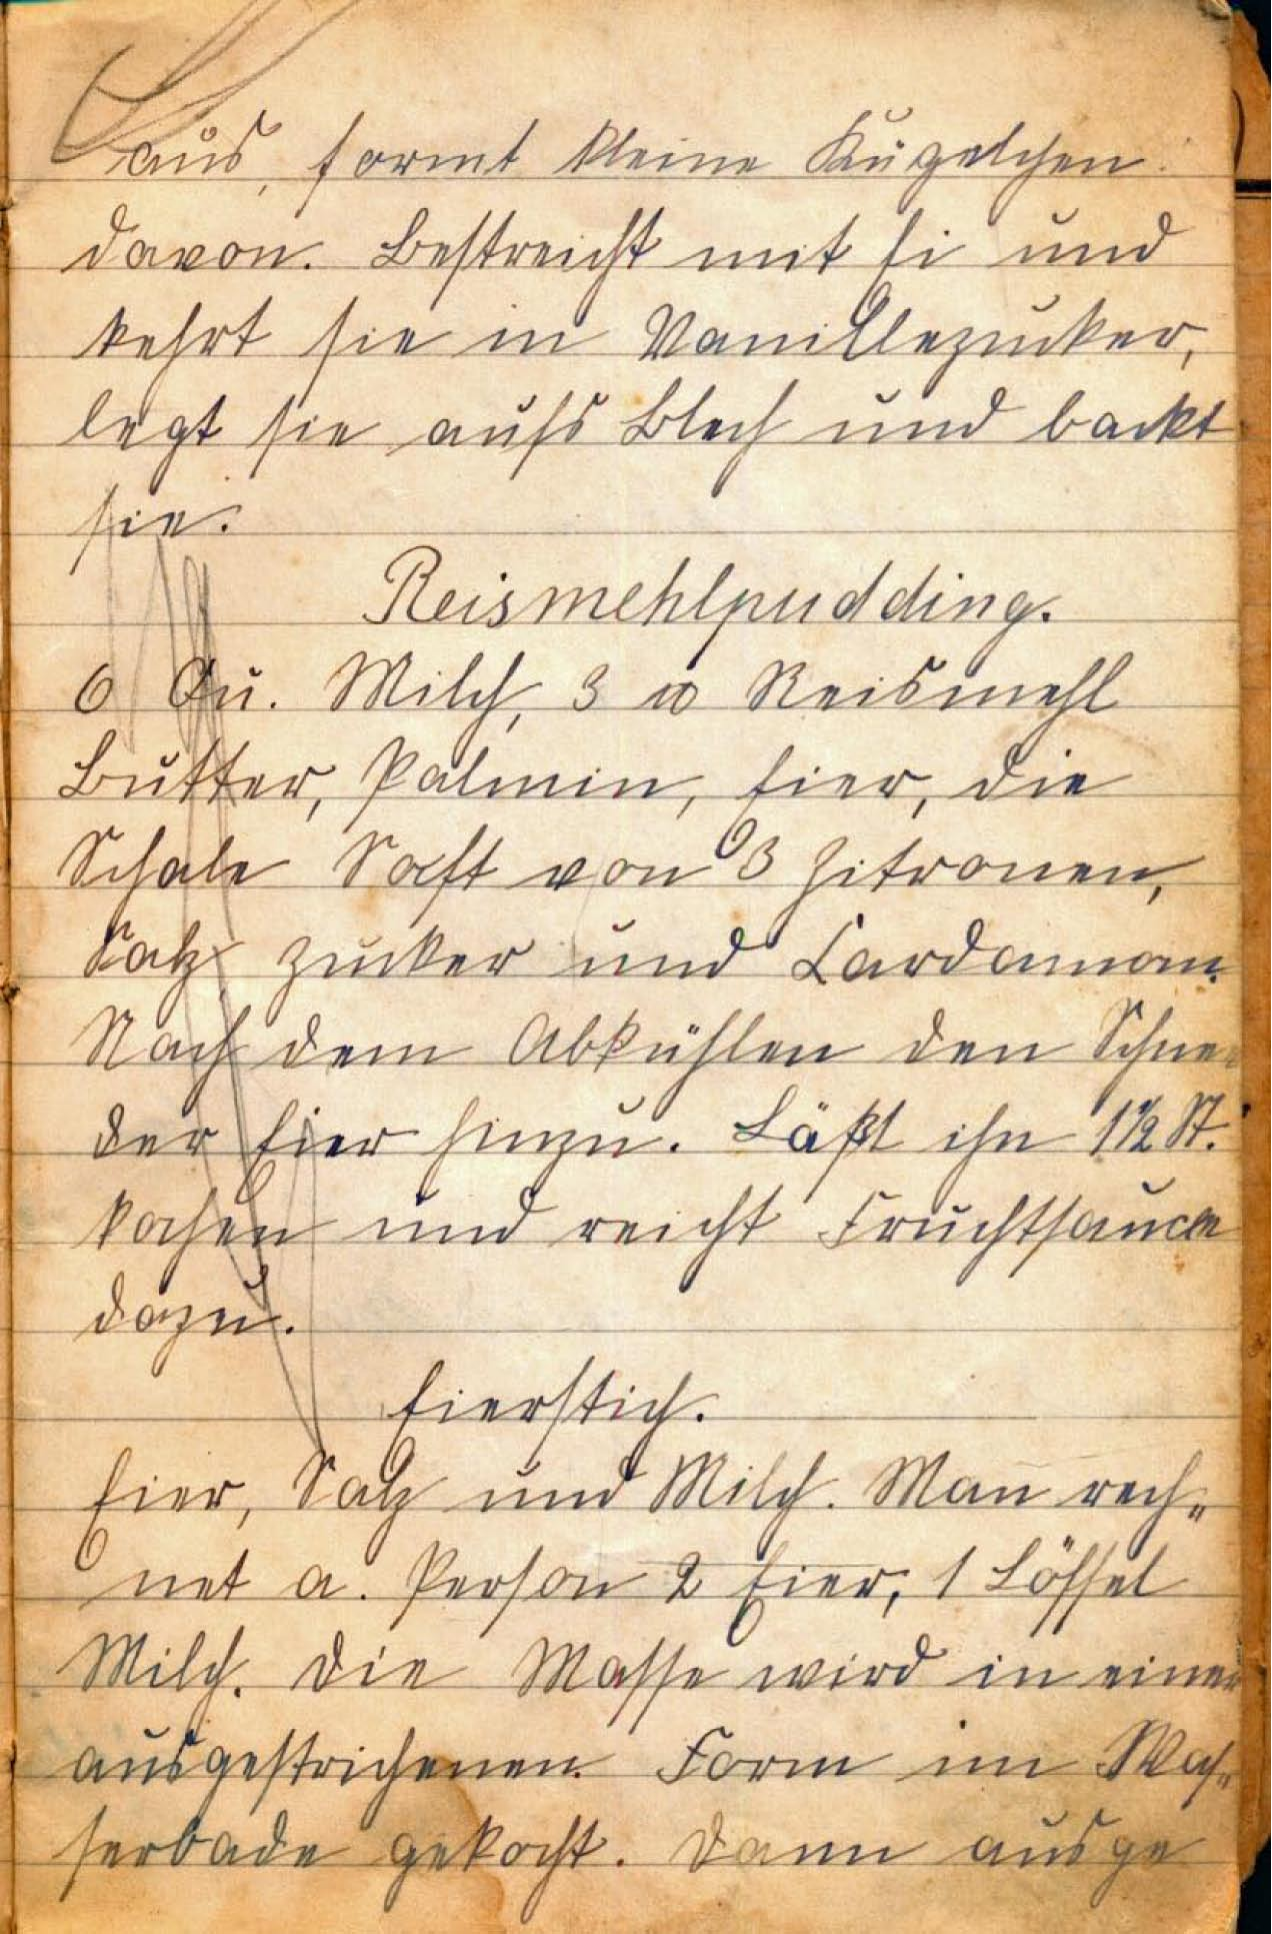 aus, formt kleine Kügelchen
davon. Bestreicht mit Ei und
kehrt sie in Vanillezucker,
legt sie aufs Blech und backt
sie.
Reismehlpudding.
6 Qu. Milch, 3 Reismehl
Butter, Palmin, Eier, die
Schale Saft von 3 Zitronen,
Salz Zucker und Cardamom.
Nach dem Abkühlen den Schnee
der Eier hinzu. Läßt ihn 1½ St.
kochen und reicht Fruchtsauce
dazu.
Eierstich.
Eier, Salz und Milch. Man rech=
net a. Person 2 Eier, 1 Löffel
Milch. Die Masse wird in einer
ausgestrichenen Form im Was=
serbade gekocht. Dann ausge